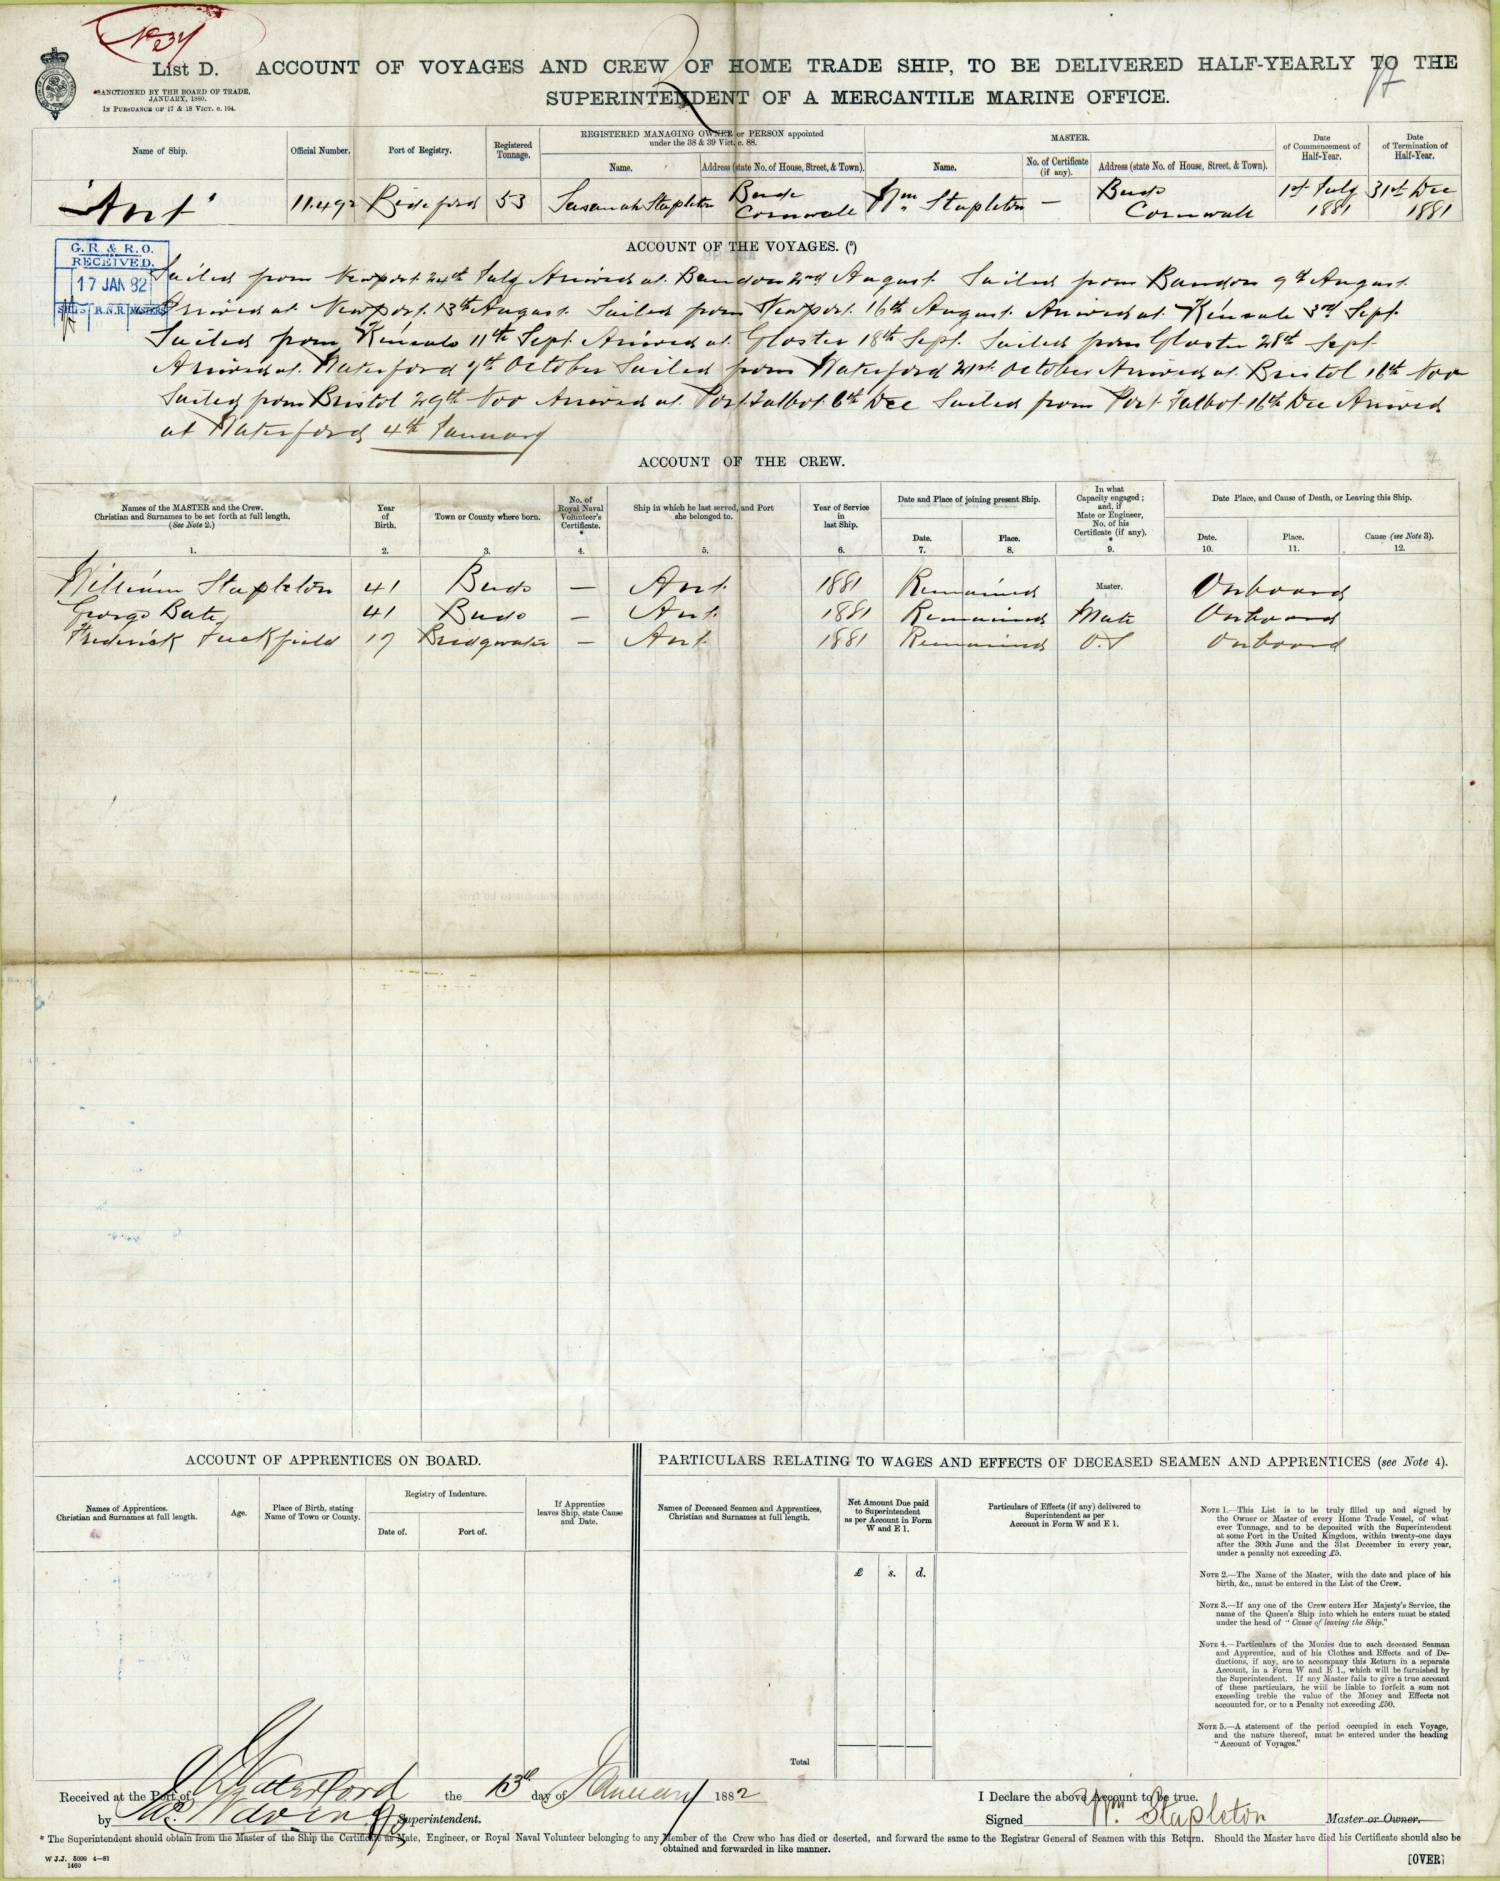 No 234
List D. ACCOUNT OF VOYAGES AND CREW OF HOME TRADE SHIP, TO BE DELIVERED HALF-YEARLY TO THE
SUPERINTENDENT OF A MERCANTILE MARINE OFFICE.
SANCTIONED BY THE BOARD OF TRADE,
JANUARY, 1880.
IN PURSUANCE OF 17 & 18 VICT. c. 104.
17
Name of Ship. Official Number. Port of Registry. Registered Tonnage. REGISTERED MANAGING OWNER or PERSON appointed under the 38 & 39 Vict. c. 88. MASTER. Date of Commencement of Half-Year. Date of Termination of Half-Year.
Name. Address (state No. of House, Street, & Town). Name. No. of Certificate (if any). Address (state No. of House, Street, & Town).
'Ant' 11.492 Bideford 53 Susanah Stapleton Bude Cornwall Wm Stapleton — Bude Cornwall 1st July 1881 31st Dec 1881
ACCOUNT OF THE VOYAGES. (5)
G. R. & R. O.
RECEIVED.
17 JAN 82
SHL'S R.N.R MASTERS
Sailed from Newport 24th July Arrived at Bandon 2nd August Sailed from Bandon 9th August
Arrived at Newport 13th August Sailed from Newport 16th August Arrived at Kinsale 3rd Sept
Sailed from Kinsale 11th Sept Arrived at Gloster 18th Sept Sailed from Gloster 28th Sept
Arrived at Waterford 9th October Sailed from Waterford 21st October Arrived at Bristol 16th Nov
Sailed from Bristol 29th Nov Arrived at Port Talbot 6th Dec Sailed from Port Talbot 16th Dec Arrived
at Waterford 4th January
ACCOUNT OF THE CREW.
Names of the MASTER and the Crew. Christian and Surnames to be set forth at full length. (See Note 2.) Year of Birth. Town or County where born. No. of Royal Naval Volunteer's Certificate. * Ship in which he last served, and Port she belonged to. Year of Service in last Ship. Date and Place of joining present Ship. In what Capacity engaged; and, if Mate or Engineer, No. of his Certificate (if any). * Date Place, and Cause of Death, or Leaving this Ship.
Date. Place. Date. Place. Cause (see Note 3).
1. 2. 3. 4. 5. 6. 7. 8. 9. 10. 11. 12.
William Stapleton 41 Bude — Ant 1881 Remained Master. Onboard
George Bate 41 Bude — Ant 1881 Remained Mate Onboard
Frederick Tuckfield 17 Bridgwater — Ant 1881 Remained O.S Onboard
ACCOUNT OF APPRENTICES ON BOARD.
Names of Apprentices. Christian and Surnames at full length. Age. Place of Birth, stating Name of Town or County. Registry of Indenture. If Apprentice leaves Ship, state Cause and Date.
Date of. Port of.
PARTICULARS RELATING TO WAGES AND EFFECTS OF DECEASED SEAMEN AND APPRENTICES (see Note 4).
Names of Deceased Seamen and Apprentices, Christian and Surnames at full length. Net Amount Due paid to Superintendent as per Account in Form W and E 1. Particulars of Effects (if any) delivered to Superintendent as per Account in Form W and E 1.
£ s. d.
Total
NOTE 1.—This List is to be truly filled up and signed by
the Owner or Master of every Home Trade Vessel, of what
ever Tonnage, and to be deposited with the Superintendent
at some Port in the United Kingdom, within twenty-one days
after the 30th June and the 31st December in every year,
under a penalty not exceeding £5.
NOTE 2.—The Name of the Master, with the date and place of his
birth, &c., must be entered in the List of the Crew.
NOTE 3.—If any one of the Crew enters Her Majesty's Service, the
name of the Queen's Ship into which he enters must be stated
under the head of "Cause of leaving the Ship."
NOTE 4.—Particulars of the Monies due to each deceased Seaman
and Apprentice, and of his Clothes and Effects and of De-
ductions, if any, are to accompany this Return in a separate
Account, in a Form W and E 1., which will be furnished by
the Superintendent. If any Master fails to give a true account
of these particulars, he will be liable to forfeit a sum not
exceeding treble the value of the Money and Effects not
accounted for, or to a Penalty not exceeding £50.
NOTE 5.—A statement of the period occupied in each Voyage,
and the nature thereof, must be entered under the heading
"Account of Voyages."
Received at the Port of Waterford the 13th day of January 1882
by Superintendent.
I Declare the above Account to be true.
Signed Wm Stapleton Master or Owner.
* The Superintendent should obtain from the Master of the Ship the Certificate as Mate, Engineer, or Royal Naval Volunteer belonging to any Member of the Crew who has died or deserted, and forward the same to the Registrar General of Seamen with this Return. Should the Master have died his Certificate should also be
obtained and forwarded in like manner.
W J.J. 5000 4—81
1460
[OVER]